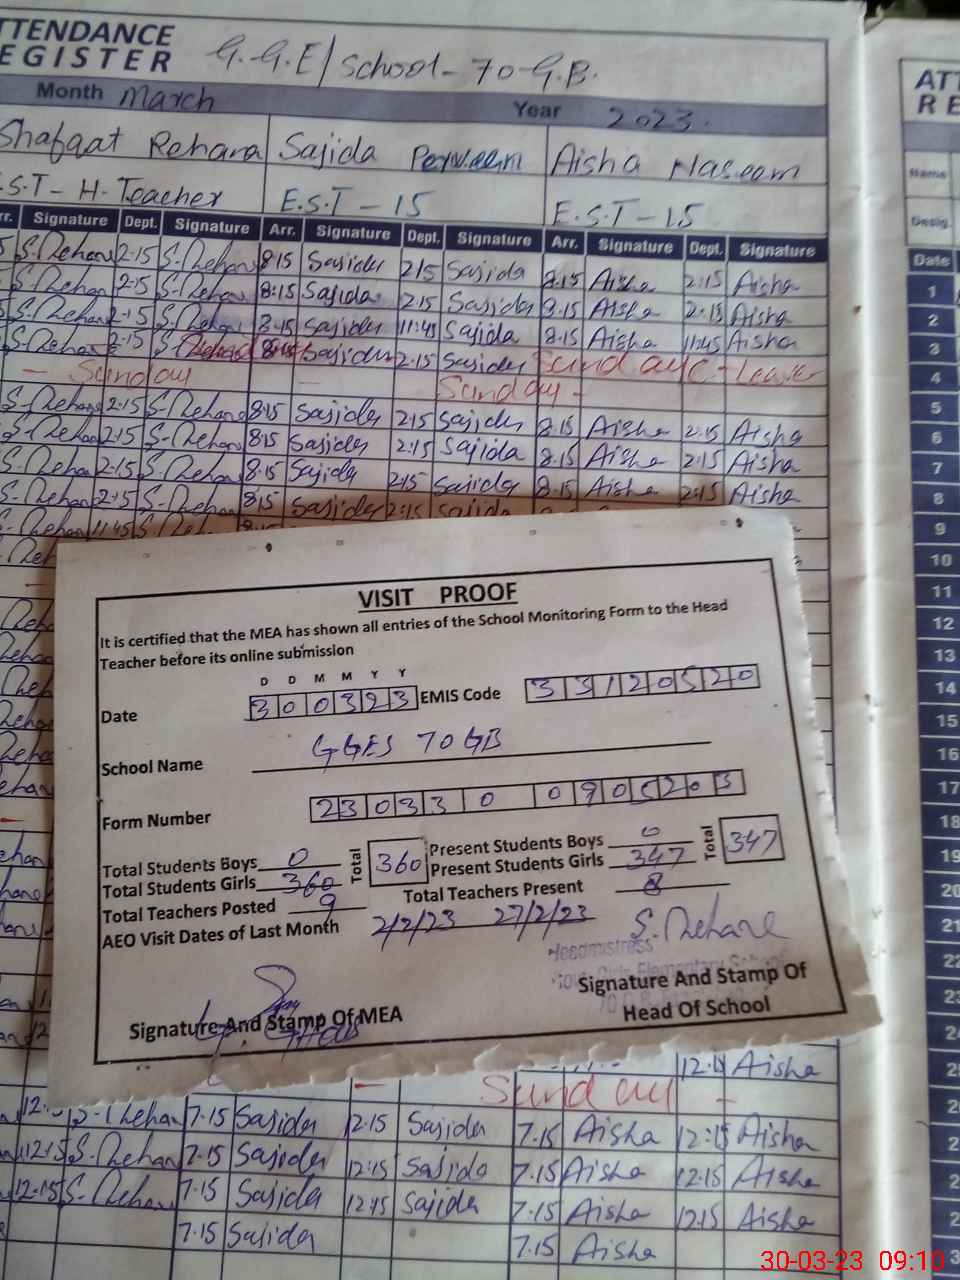 ATTENDANCE
REGISTER G.G.E/School-70-G.B.
Month March Year 2023.
Shafaat Rehana Sajida Perveen Aisha Naseem
E.S.T-H.Teacher E.S.T-15 E.S.T-15
Arr. Signature Dept. Signature Arr. Signature Dept. Signature Arr. Signature Dept. Signature
S.Rehana 2.15 S.Rehana 8:15 Sajida 2:15 Sajida 8.15 Aisha 2:15 Aisha
S.Rehana 2.15 S.Rehana 8:15 Sajida 2:15 Sajida 8.15 Aisha 2:15 Aisha
S.Rehana 2.15 S.Rehana 8.15 Sajida 11:45 Sajida 8.15 Aisha 11:45 Aisha
S.Rehana 2.15 Sajida 2.15 Sajida Leave
- Sunday - Sunday -
S.Rehana 2.15 S.Rehana 8.15 Sajida 2:15 Sajida 8.15 Aisha 2:15 Aisha
S.Rehana 2.15 S.Rehana 8.15 Sajida 2:15 Sajida 8.15 Aisha 2:15 Aisha
S.Rehana 2.15 S.Rehana 8.15 Sajida 2:15 Sajida 8.15 Aisha 2:15 Aisha
S.Rehana 2.15 S.Rehana 8:15 Sajida 2:15 Sajida
S.Rehana 11:45
VISIT PROOF
It is certified that the MEA has shown all entries of the School Monitoring Form to the Head
Teacher before its online submission
D D M M Y Y
Date 300323 EMIS Code 33120520
School Name GGES 70 GB
Form Number 23033 0 0 905203
Total Students Boys 0 Total 360 Present Students Boys 0 Total 347
Total Students Girls 360 Present Students Girls 347
Total Teachers Posted 9 Total Teachers Present 8
AEO Visit Dates of Last Month 2/2/23 27/2/23 S.Rehana
Headmistress
Signature And Stamp Of MEA
Signature And Stamp Of
Head Of School
12.15 Aisha
- Sunday -
S.Rehana 7.15 Sajida 12.15 Sajida 7.15 Aisha 12:15 Aisha
12:15 S.Rehana 7.15 Sajida 12:15 Sajida 7.15 Aisha 12.15 Aisha
12.15 S.Rehana 7.15 Sajida 12:15 Sajida 7.15 Aisha 12.15 Aisha
7.15 Sajida 7.15 Aisha
ATT
RE
Name
Desig.
Date
1
2
3
4
5
6
7
8
9
10
11
12
13
14
15
16
17
18
19
20
21
22
23
30-03-23 09:10